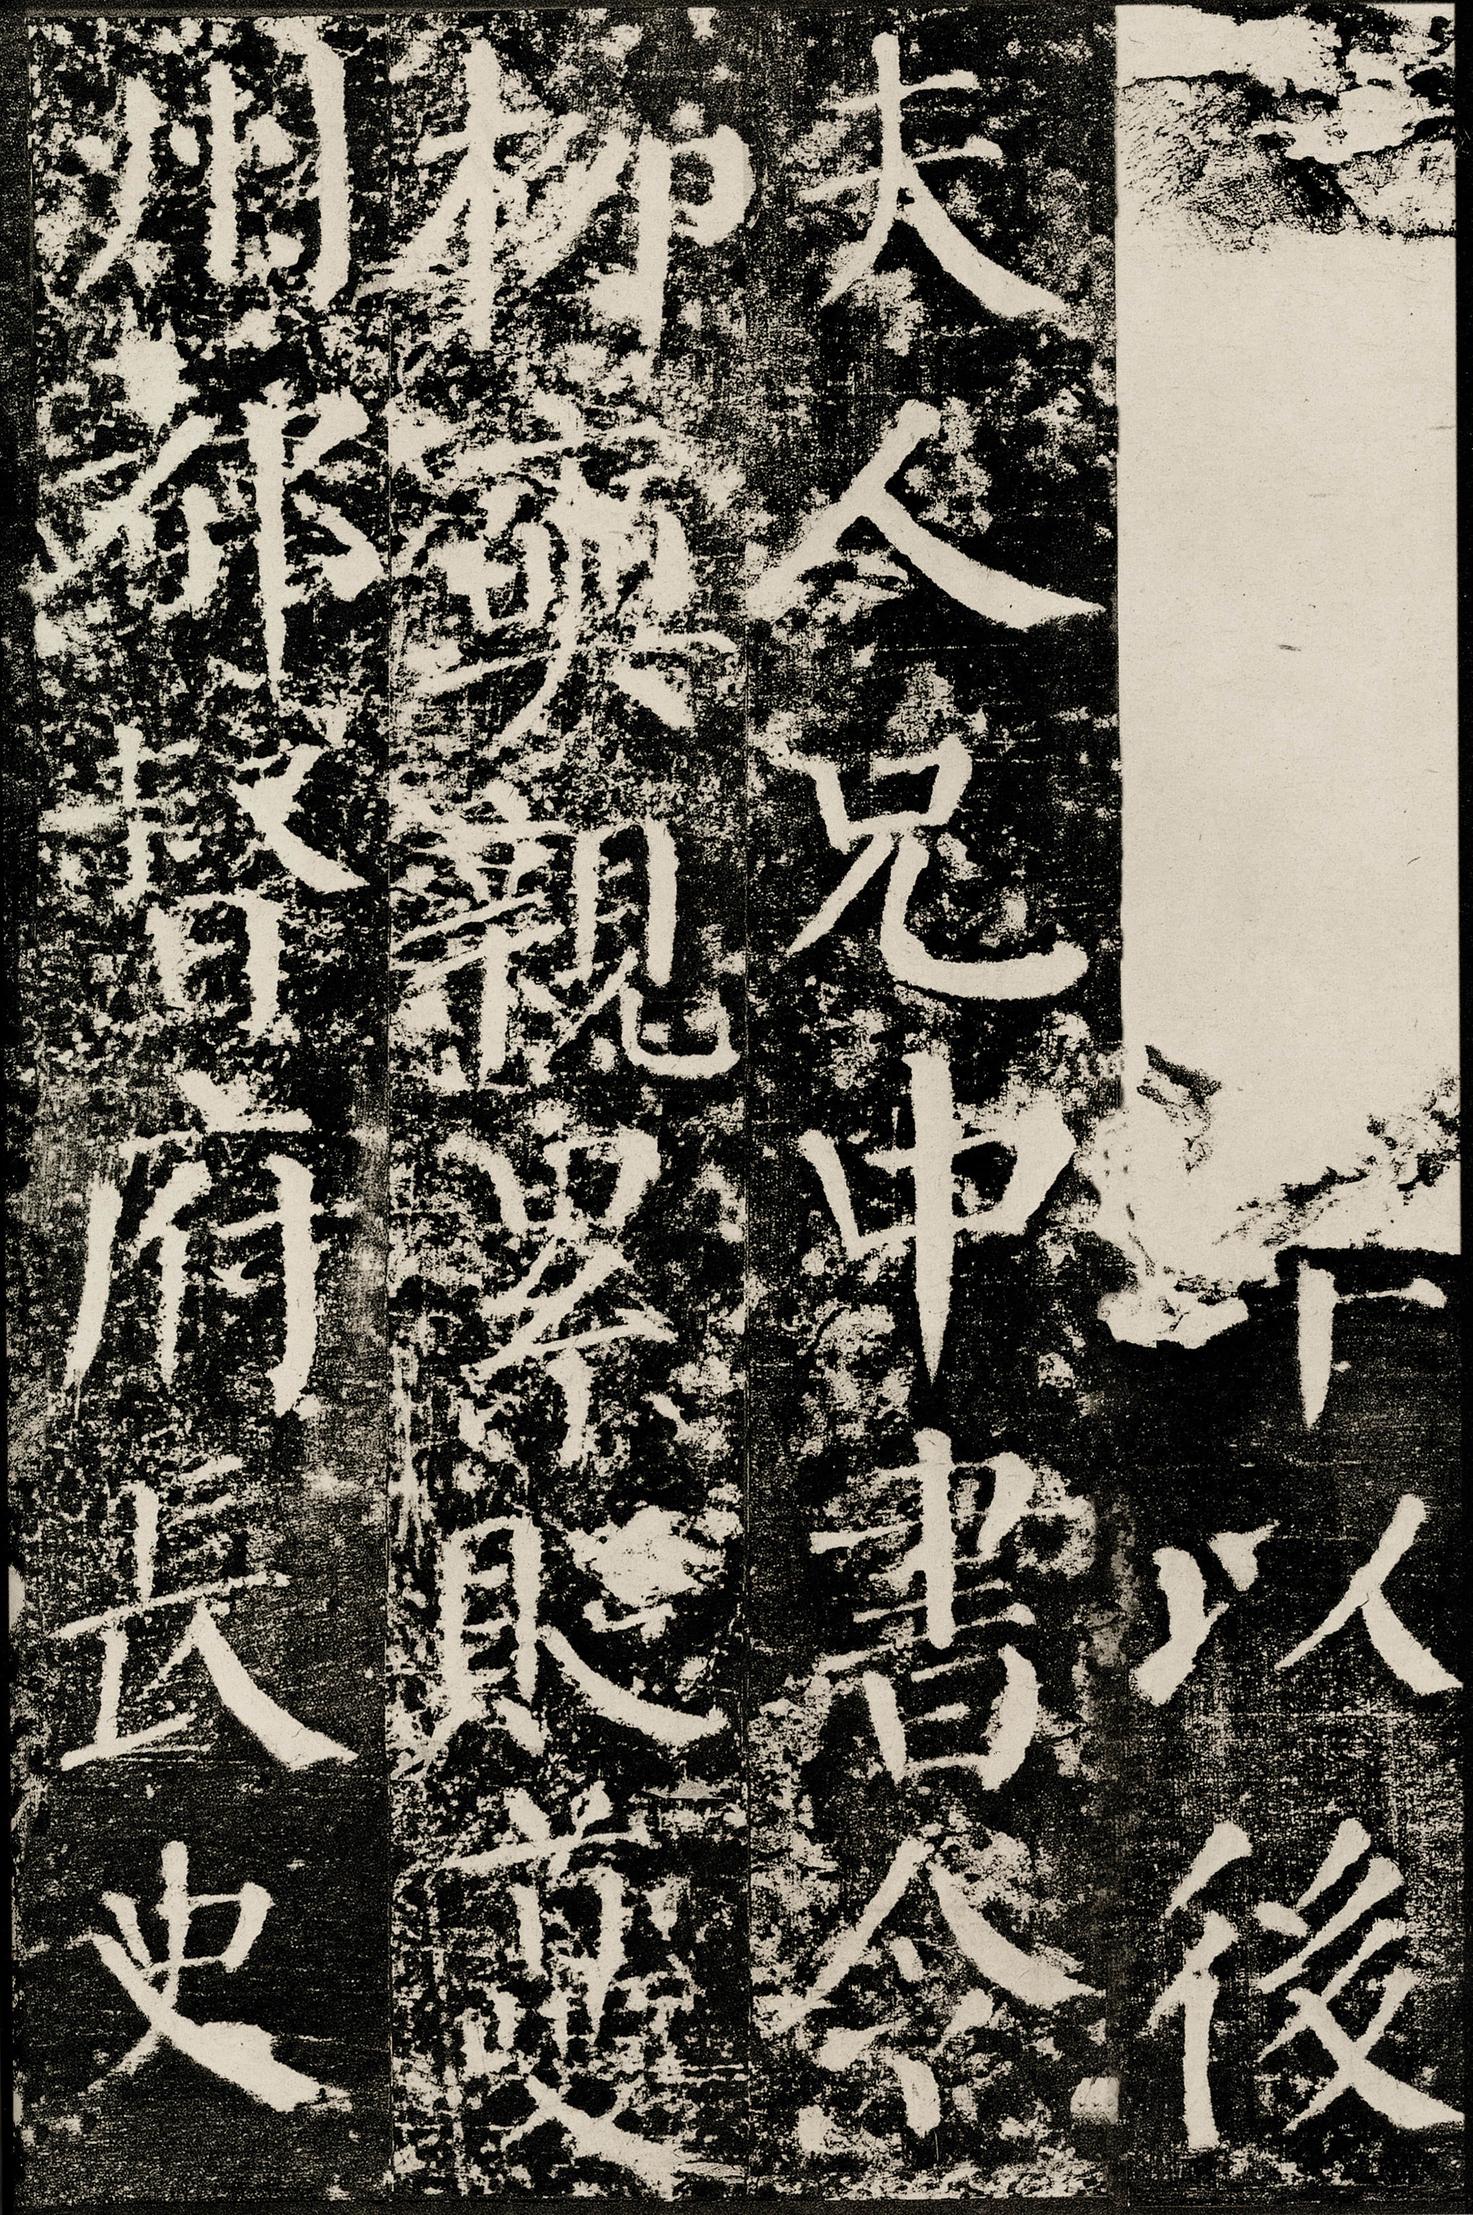 下以後
夫人兄中書令
柳奭親累貶夔
州都督府長史